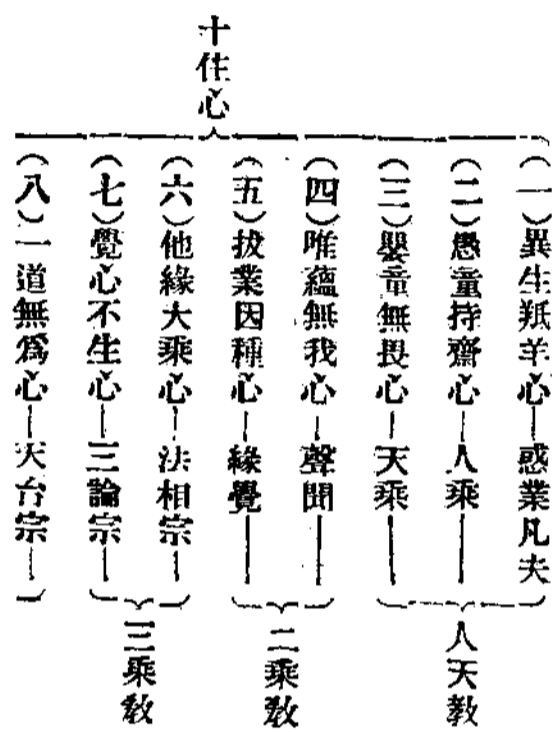 十住心
(一)異生羝羊心—惑業凡夫
(二)愚童持齋心—人乘
(三)嬰童無畏心—天乘
人天教
(四)唯蘊無我心—聲聞
(五)拔業因種心—緣覺
二乘教
(六)他緣大乘心—法相宗
(七)覺心不生心—三論宗
三乘教
(八)一道無爲心—天台宗